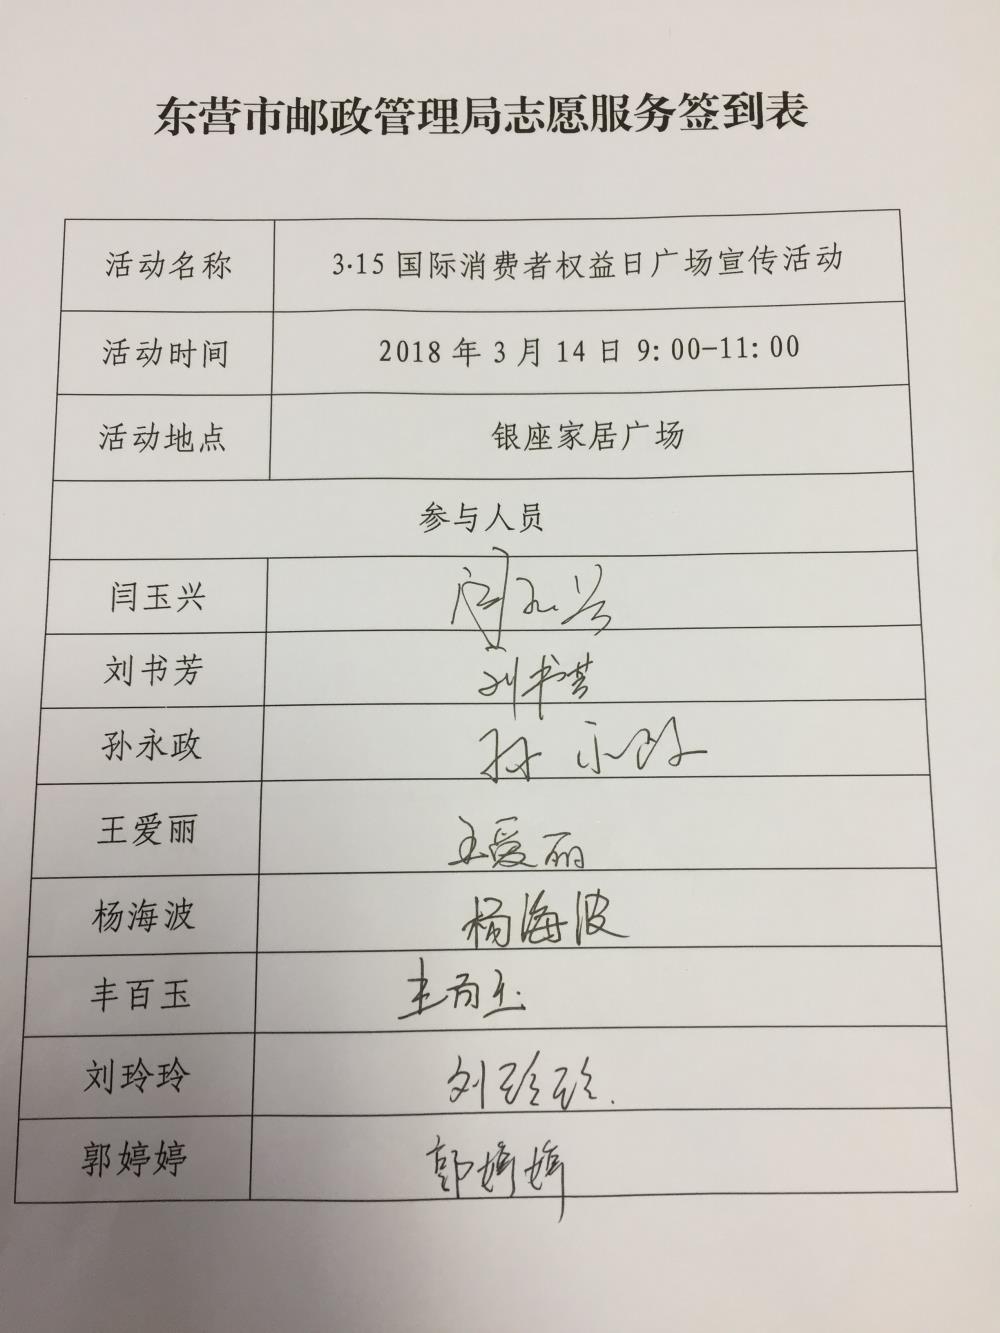 东营市邮政管理局志愿服务签到表
活动名称 3·15 国际消费者权益日广场宣传活动
活动时间 2018 年 3 月 14 日 9: 00-11: 00
活动地点 银座家居广场
参与人员
闫玉兴 闫玉兴
刘书芳 刘书芳
孙永政 孙永政
王爱丽 王爱丽
杨海波 杨海波
丰百玉 丰百玉
刘玲玲 刘玲玲.
郭婷婷 郭婷婷